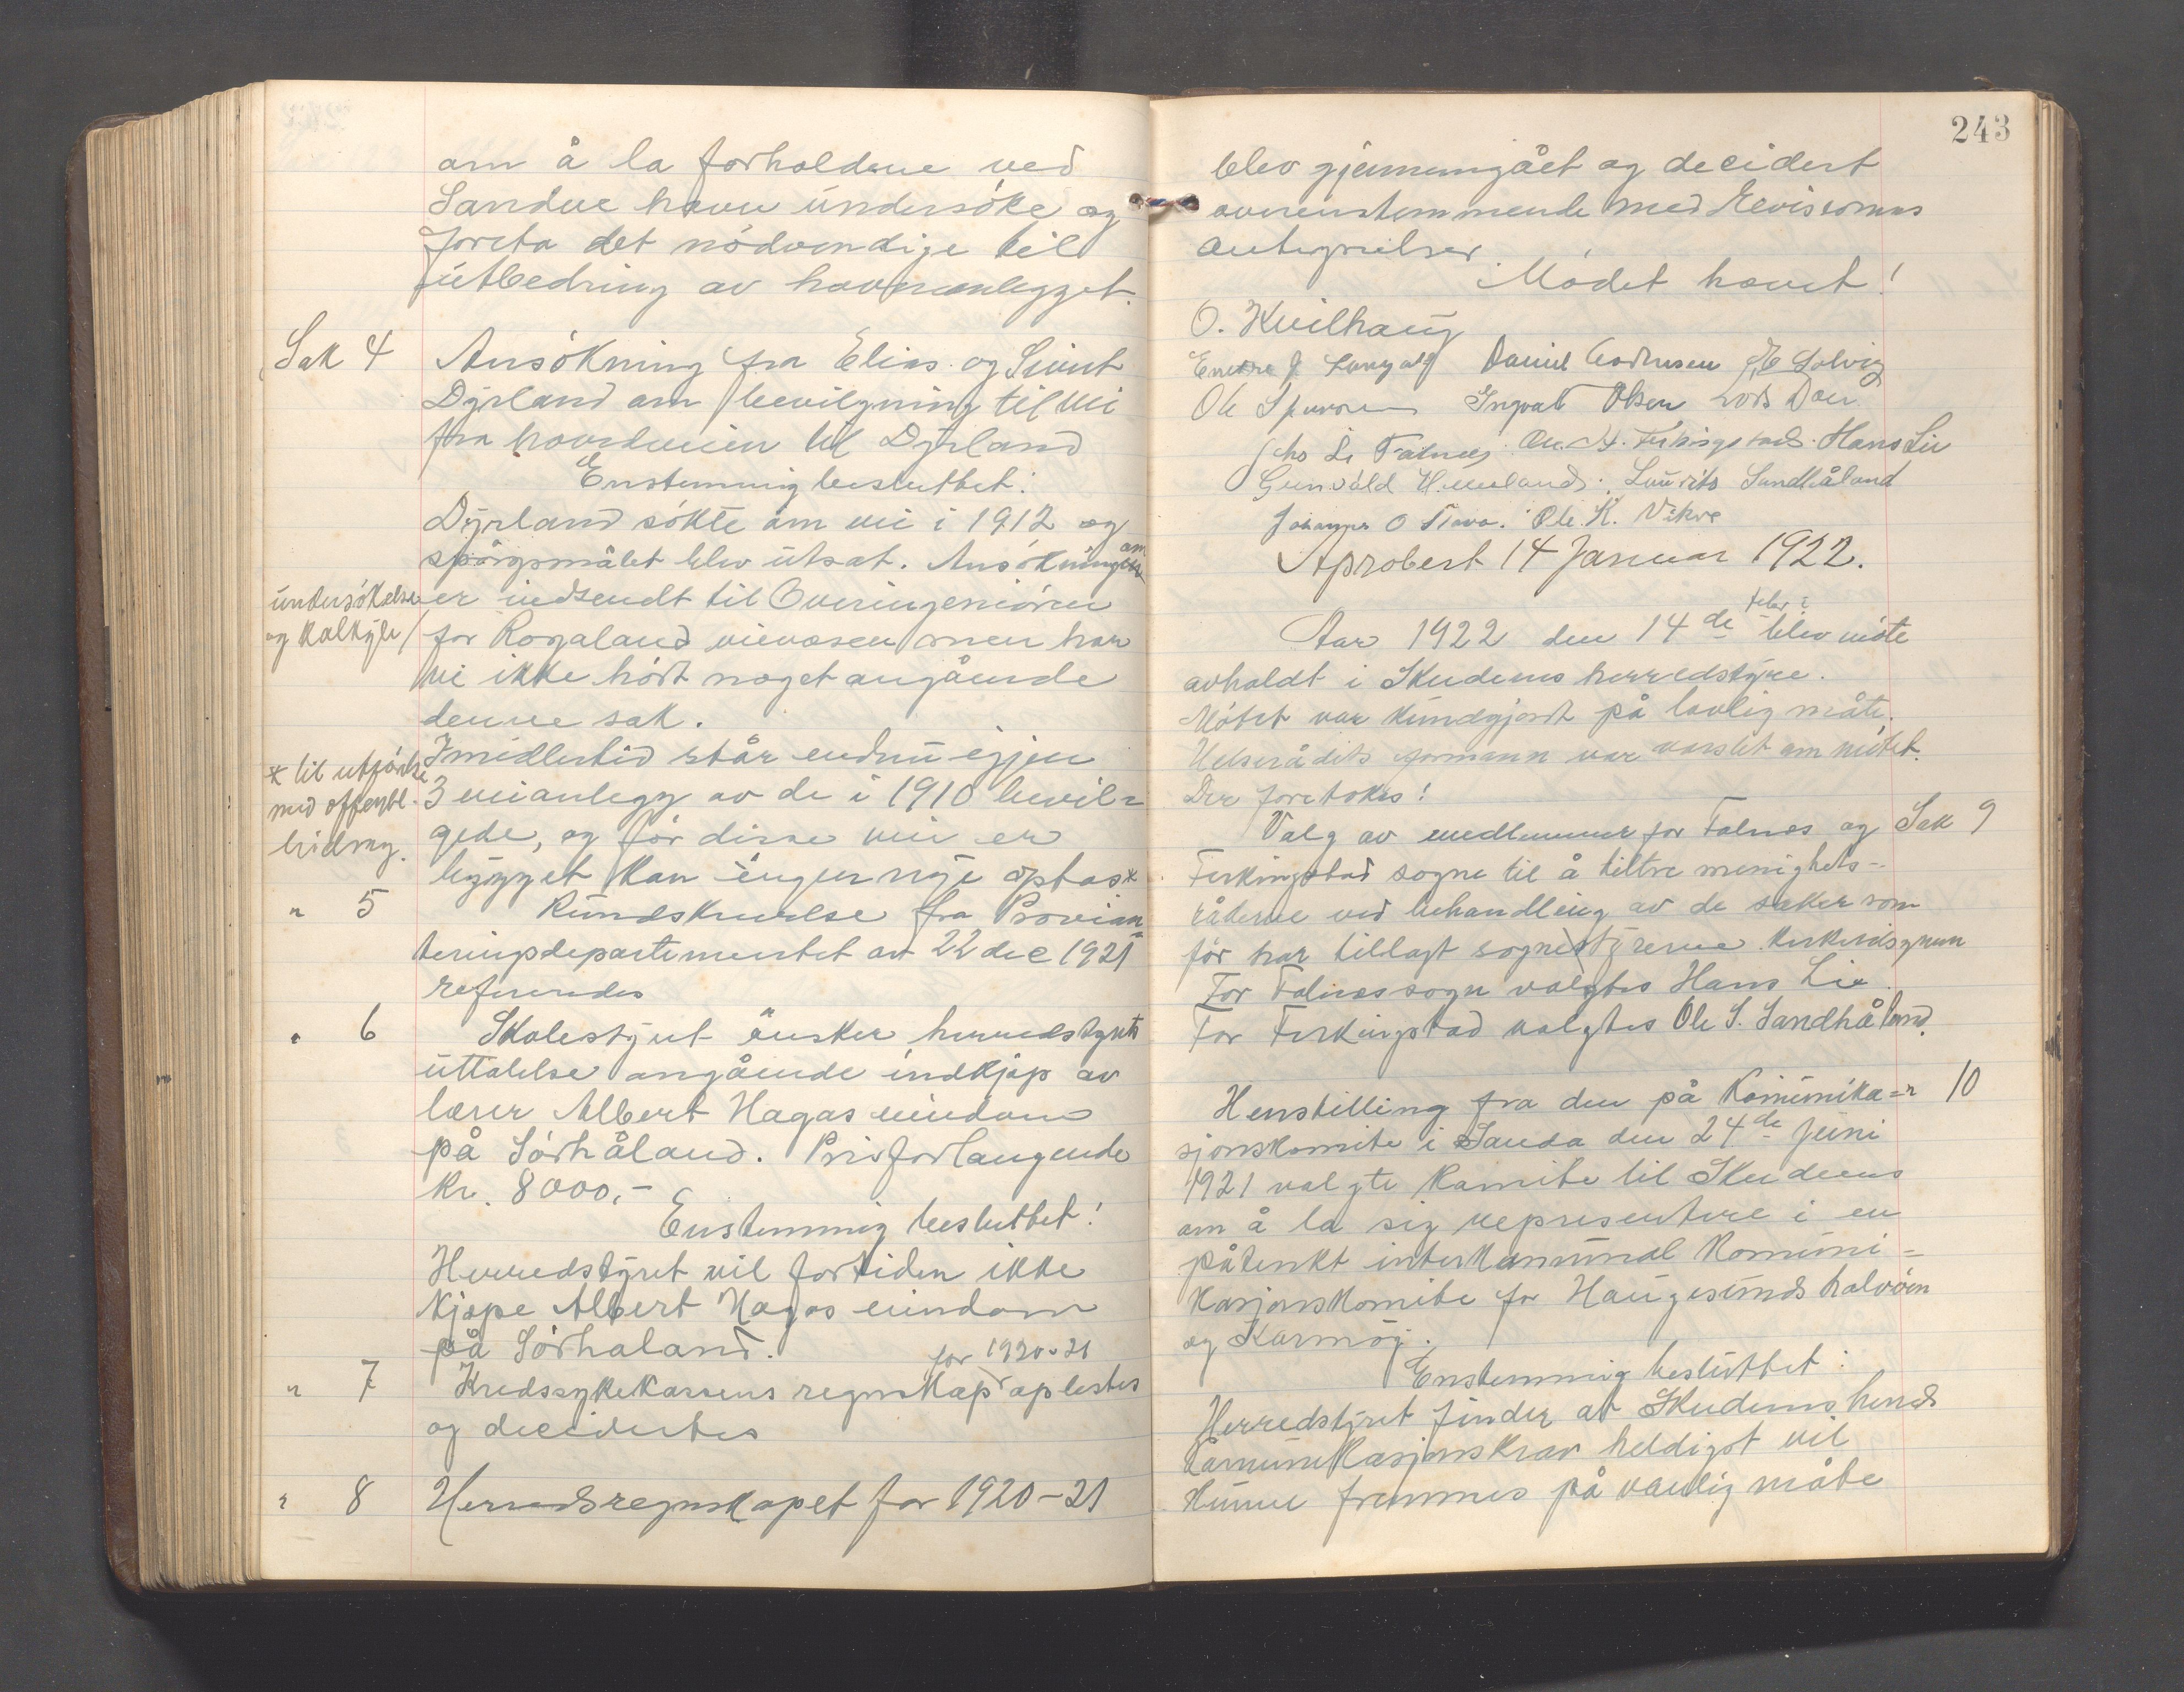 om å la forholdene ved
Sandve havn undersöke og
foreta det nödvendige til
utbedring av havneanlegget.
Sak 4 Ansökning fra Elias og Sivert
Dyrland om bevilgning til vei
fra hovedveien til Dyrland
Enstemmig besluttet:
Dyrland sökte om vei i 1912 og
spörgsmålet blev utsat. Ansökning om
undersökelse og kalkyle/ er indsendt til Overingeniören
for Rogaland veivæsen men har
vi ikke hört noget angående
denne sak.
Imidlertid står endnu igjen
3 veianlegg av de i 1910 bevil-
gede, og för disse vei er
bygget kan ingen nye optas*
* til utförelse
med offentl.
bidrag.
" 5 Rundskrivelse fra Provian-
teringsdepartementet av 22 dec 1921
refereredes
" 6 Skolestyret önsker herredstyrets
uttalelse angående indkjöp av
lærer Albert Hagas eiendom
på Sörhåland. Prisforlangende
kr. 8000,-
Enstemmig besluttet!
Herredstyret vil fortiden ikke
kjöpe Albert Hagas eiendom
på Sörhaland.
" 7 Kredssykekassens regnskap for 1920-21 oplestes
og decidertes
" 8 Herredsregnskapet for 1920-21
243
blev gjennemgået og decidert
overenstemmende med Revisionens
antegnelser.
Mödet hævet!
O. Kvilhaug
Endre J Daniel
Ole Ingvald Olsen Lars
Falnes Ferkingstad. Hans Lie
Gunvald Laurits Sandhåland
Johannes O Stava. Ole K. Vikre
Aprobert 14 Januar 1922.
Aar 1922 den 14de febr: blev möte
avholdt i Skudenes herredstyre.
Mötet var kundgjort på lovlig måte.
Helserådets formann var varslet om mötet.
Der foretokes!
Valg av medlemmer for Falnes og Sak 9
Ferkingstad sogne til å tiltre menighets-
råderne ved behandling av de saker som
för har tillagt sognestyrerne
For Falnes sogn valgtes Hans Lie.
For Ferkingstad valgtes Ole S. Sandhåland.
Henstilling fra den på Kommunika- 10
sjonskomite i Sauda den 24de Juni
1921 valgte komite til Skudenes
om å la sig representere i en
påtenkt interkommunal Kommuni-
kasjonskomite for Haugesunds halvöen
og Karmöy.
Enstemmig besluttet:
Herredstyret finder at Skudenes herreds
Kommunikasjonskrav heldigst vil
kunne fremmes på vanlig måte